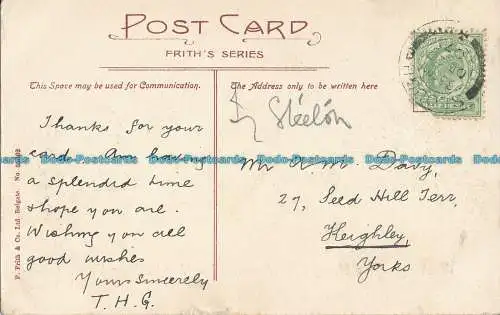 POST CARD
FRITH'S SERIES
This Space may be used for Communication.
The Address only to be written here
Steeton
Thanks for your
card. Am having
a splendid time
& hope you are.
Wishing you all
good wishes
Yours Sincerely
T. H. G.
Mr R. M. Davy,
27, Seed Hill Terr,
Keighley,
Yorks
F. Frith & Co., Ltd. Reigate No.
Dodo-Postcards Dodo-Postcards Dodo-Postcards Dodo-Postcards